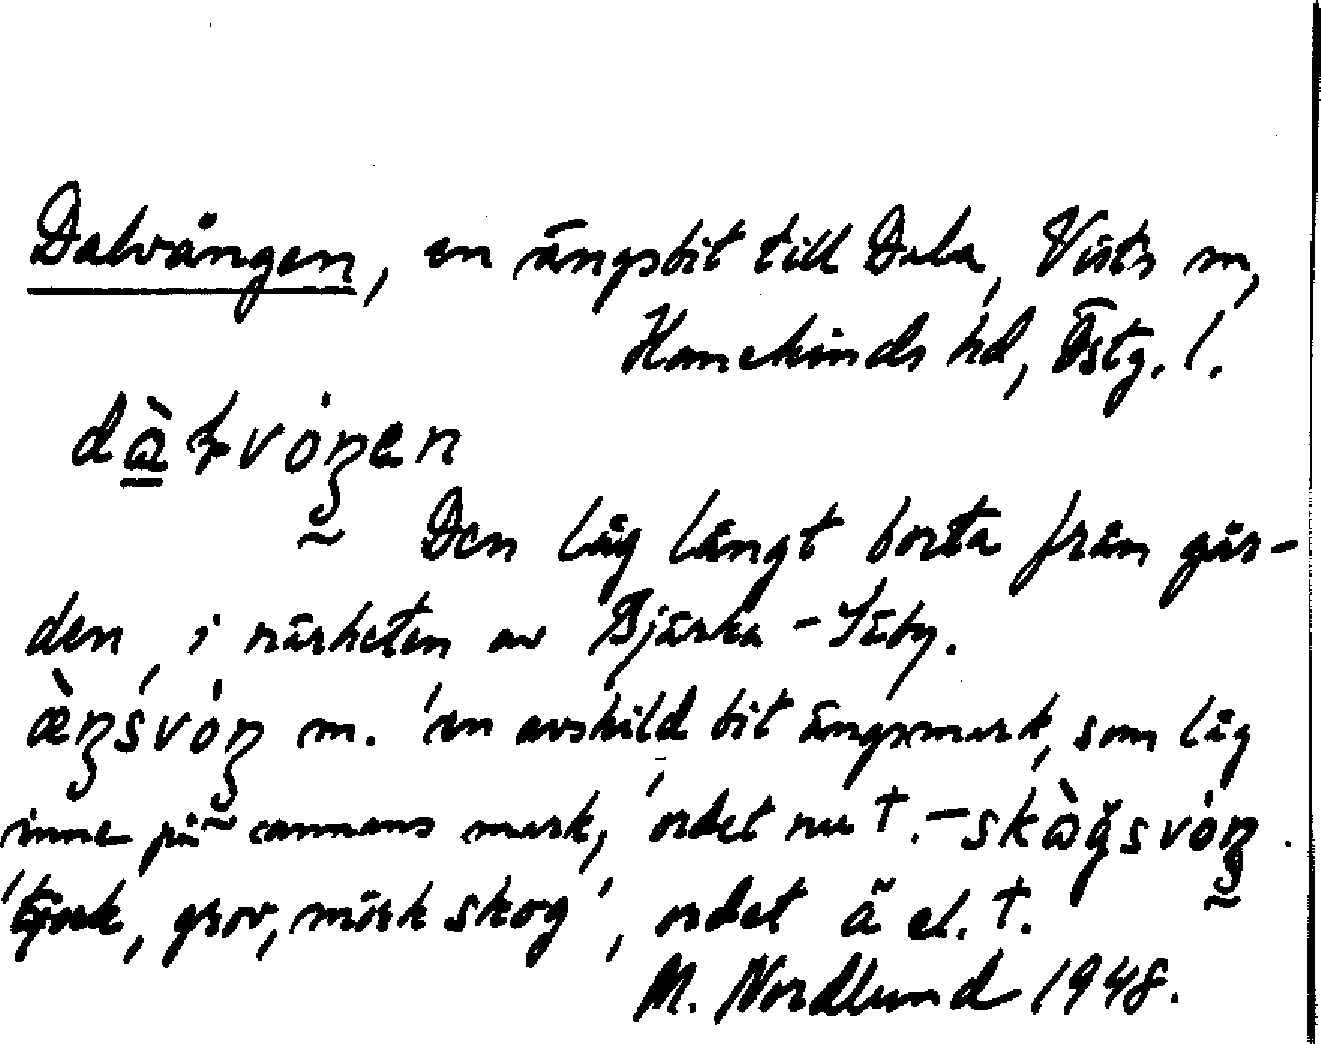 Dalvången, en ängsbit till Dala, Vists sn,
Hanekinds hd, Östg. l.
dàlvóŋen
Den låg långt borta från går-
den, i närheten av Bjärka-Säby.
æ̀ŋsvóŋ m. 'en avskild bit ängsmark, som låg
inne på annans mark,' ordet nu †. – skògsvóŋ.
'tjock, grov, mörk skog', ordet ä el. †.
M. Nordlund 1948.